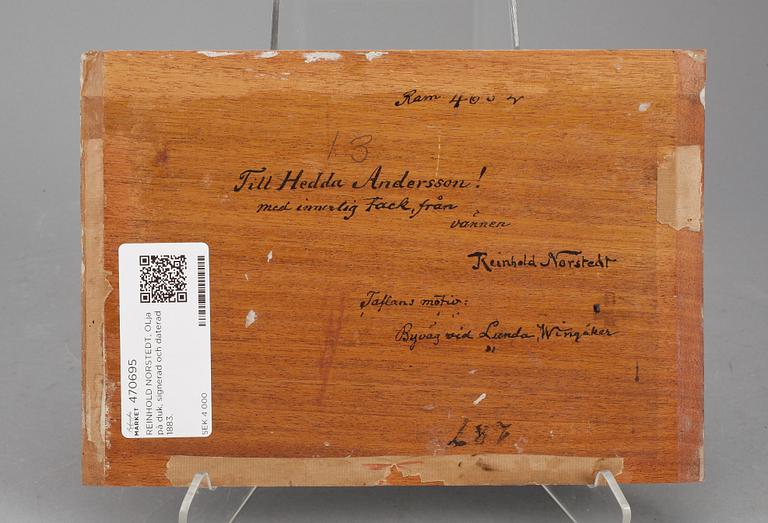 Ram
13
Till Hedda Andersson!
med innerlig Tack, från
vännen
Reinhold Norstedt
Taflans motiv:
Byväg vid Lunda, Wingåker
187
MARKET 470695
REINHOLD NORSTEDT, OLja
på duk, signerad och daterad
1883.
SEK 4 000